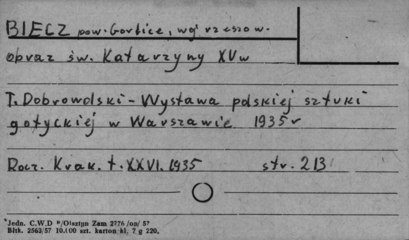 BIECZ pow. Gorlice, wg' rzeszow.
obraz św. Katarzyny XVw
T. Dobrowolski - Wystawa polskiej sztuki
gotyckiej w Warszawie 1935r
Rocz. Krak. t. XXVI. 1935 str. 213
Jedn. C.W.D /Olsztyn Zam 2776 /on/ 57
Błtk. 2562/57 10.000 szt. karton kl. 7 g 220.